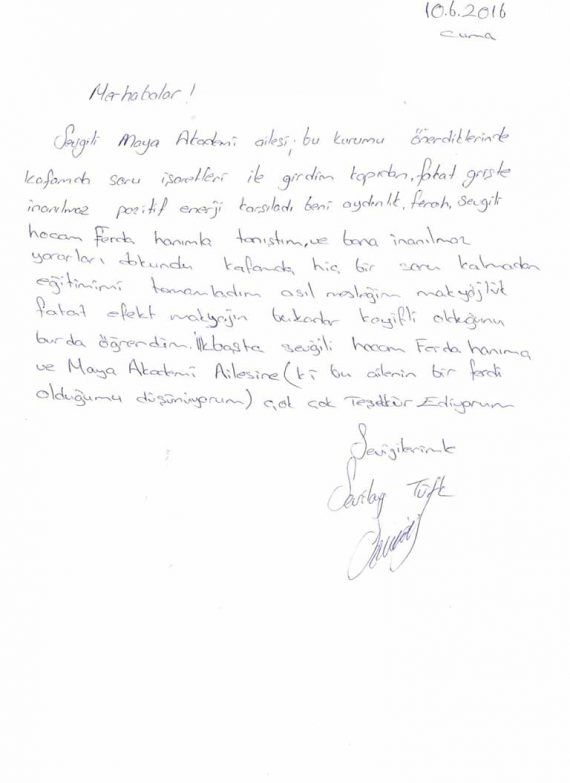 10.6.2016
Cuma
Merhabalar!
Sevgili Maya Akademi ailesi; bu kurumu önerdiklerinde
kafamda soru işaretleri ile girdim kapıdan, fakat girişte
inanılmaz pozitif enerji karşıladı beni aydınlık, ferah, sevgili
hocam Ferda hanımla tanıştım, ve bana inanılmaz
yararları dokundu kafamda hiç bir soru kalmadan
eğitimimi tamamladım asıl mesleğim makyöjlük
fakat efekt makyajın bukadar keyifli olduğunu
burda öğrendim. İlkbaşta sevgili hocam Ferda hanıma
ve Maya Akademi Ailesine (ki bu ailenin bir ferdi
olduğumu düşünüyorum) çok çok Teşekkür Ediyorum
Sevgilerimle
Sevilay